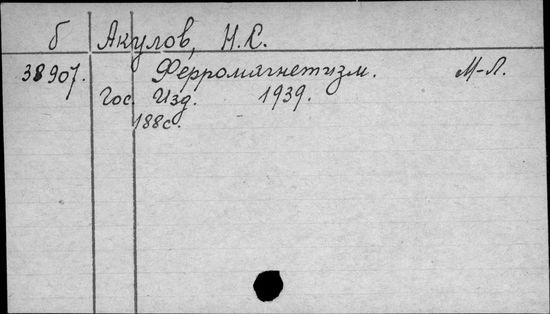 б Акулов, Н.С.
38907. Ферромагнетизм. М-Л.
Гос. Изд. 1939.
188с.